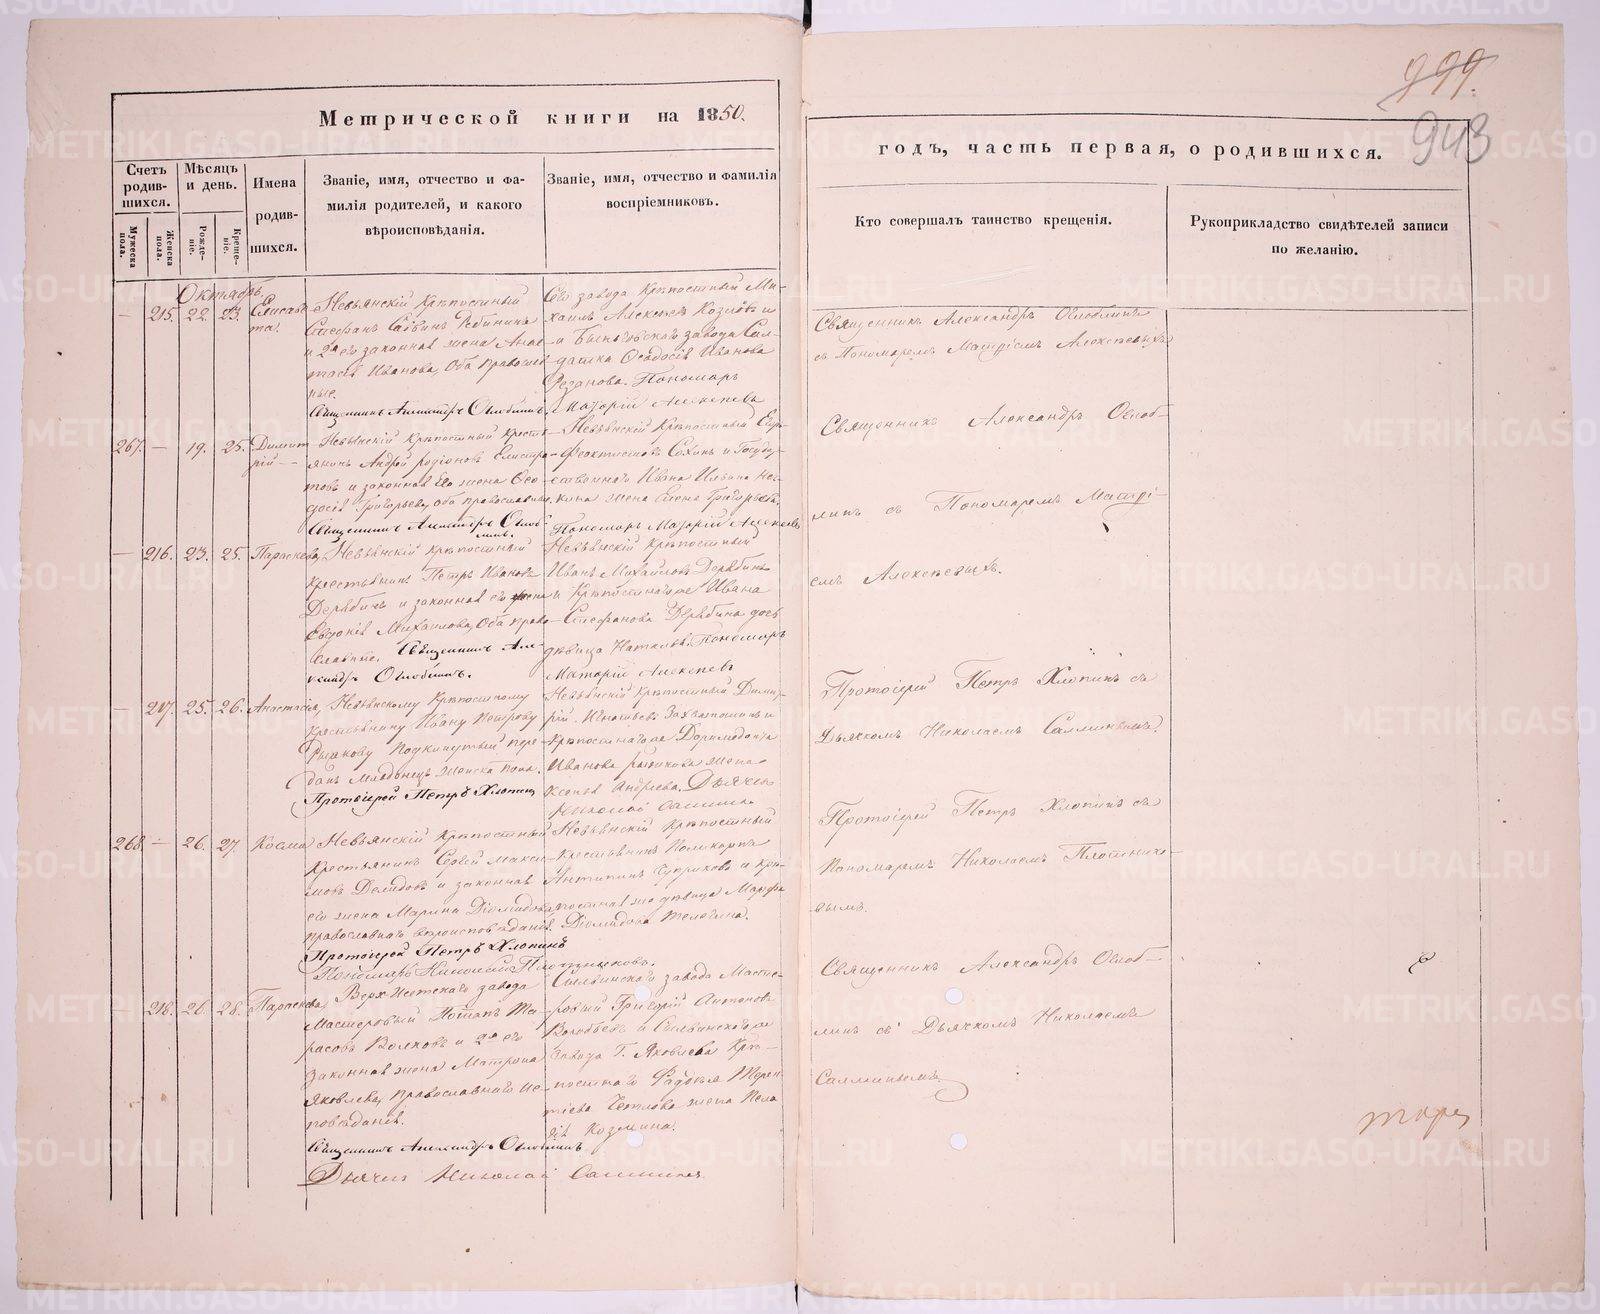 999.
943
Метрической книги на 1850.
годъ, часть первая, о родившихся.
Счетъ родив-шихся.
Мужеска пола.
Женска пола.
Мѣсяцъ и день.
Рожде-ніе.
Креще-ніе.
Имена
родив-
шихся.
Званіе, имя, отчество и фа-
милія родителей, и какого
вѣроисповѣданія.
Званіе, имя, отчество и фамилія
воспріемниковъ.
Кто совершалъ таинство крещенія.
Рукоприкладство свидѣтелей записи
по желанію.
Октябрь.
— 215. 22. 23. Елисаве-
та.
Невьянскій Крѣпостный
Стефанъ Савинъ Рябининъ
и 2я его законная жена Анас-
тасія Иванова, Оба Православ-
ные.
Священникъ Александръ Оглоблинъ.
Сего завода Крѣпостный Ми-
хаилъ Алексѣевъ Козловъ и
Быньговскаго завода Сол-
датка Ѳеодосія Иванова
Пономарь
Матѳій Алексѣевъ
Священникъ Александръ Оглоблинъ
съ Пономаремъ Матѳіемъ Алексѣевымъ
267. — 19. 25. Димит-
рій —
Невьянскій Крѣпостный Кресть-
янинъ Андрей Родіоновъ Елистра-
товъ и законная его жена Ѳео-
досія Григорьева, оба православные.
Священникъ Александръ Оглоб-
линъ.
Невьянскій Крѣпостный
Ѳеоктистовъ и Госуд-
Ивана
жена Елена Григорьева.
Пономарь Матѳій Алексѣевъ
Священникъ Александръ Оглоб-
линъ съ Пономаремъ Матѳі-
емъ Алексѣевымъ.
— 216. 23. 25. Параскева,
Невьянскій Крѣпостный
Крестьянинъ Петръ Ивановъ
Дерябинъ и законная его жена
Евдокія Михайлова, Оба право-
славные. Священникъ Але-
ксандръ Оглоблинъ.
Невьянскій Крѣпостный
Иванъ Михайловъ Дерябинъ
и Крѣпостнаго же Ивана
Стефанова Дерябина дочь
дѣвица Наталья. Пономарь
Матѳій Алексѣевъ
— 217. 25. 26. Анастасія,
Невьянскому Крѣпостному
Крестьянину Ивану Петрову
Рыжкову Подкинутый пере-
данъ младенецъ женска пола.
Протоіерей Петръ Хлопинъ
Невьянскій Крѣпостный Дими-
трій Игнатьевъ и
Крѣпостнаго же Доримедонта
Иванова Рыжкова жена
Ксенія Андреева. Дьячекъ
Николай
Протоіерей Петръ Хлопинъ съ
Дьячкомъ Николаемъ
268. — 26. 27. Косма
Невьянскій Крѣпостный
Крестьянинъ Сергей Макси-
мовъ Демидовъ и законная
его жена Марина Діомидова,
православнаго вѣроисповѣданія.
Протоіерей Петръ Хлопинъ
Пономарь Николай Плотниковъ.
Невьянскій Крѣпостный
Крестьянинъ Поликарпъ
Антипинъ и Крѣ-
постная же дѣвица Марфа
Діомидова Телегина.
Протоіерей Петръ Хлопинъ съ
Пономаремъ Николаемъ Плотнико-
вымъ.
— 218. 26. 28. Параскева,
Верх-Исетскаго завода
Мастеровый Потапъ Та-
расовъ Волковъ и 2я его
Законная жена Матрона
Яковлева, Православнаго ис-
повѣданія.
Священникъ Александръ Оглоблинъ.
Дьячекъ Николай
Сылвинскаго завода Масте-
ровый Григорій Антоновъ
и Сылвинскаго же
завода Г. Яковлева Крѣ-
постнаго Терен-
тіева жена Пела-
гія Козмина.
Священникъ Александръ Оглоб-
линъ съ Дьячкомъ Николаемъ